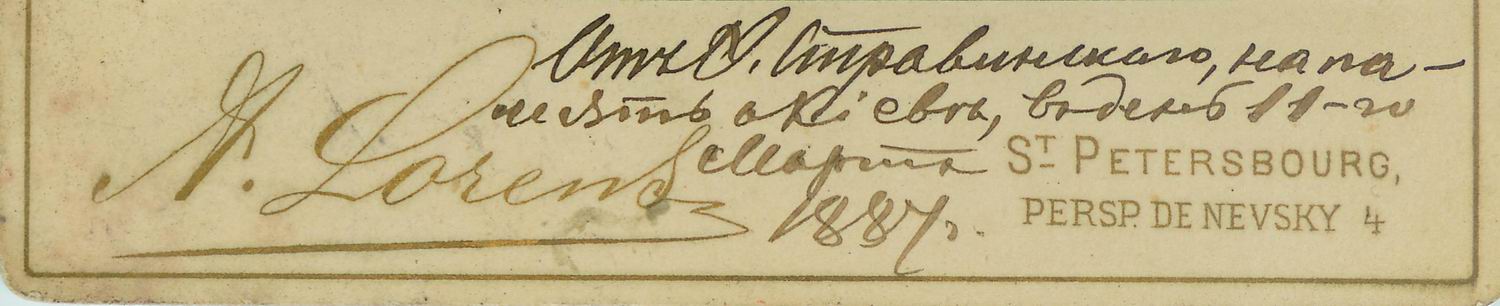 Отъ Ѳ. Стравинскаго, на па-
мять о Кіевѣ, въ день 11-го
Марта
1887 г.
A. Lorens
ST PETERSBOURG,
PERSP. DE NEVSKY 4